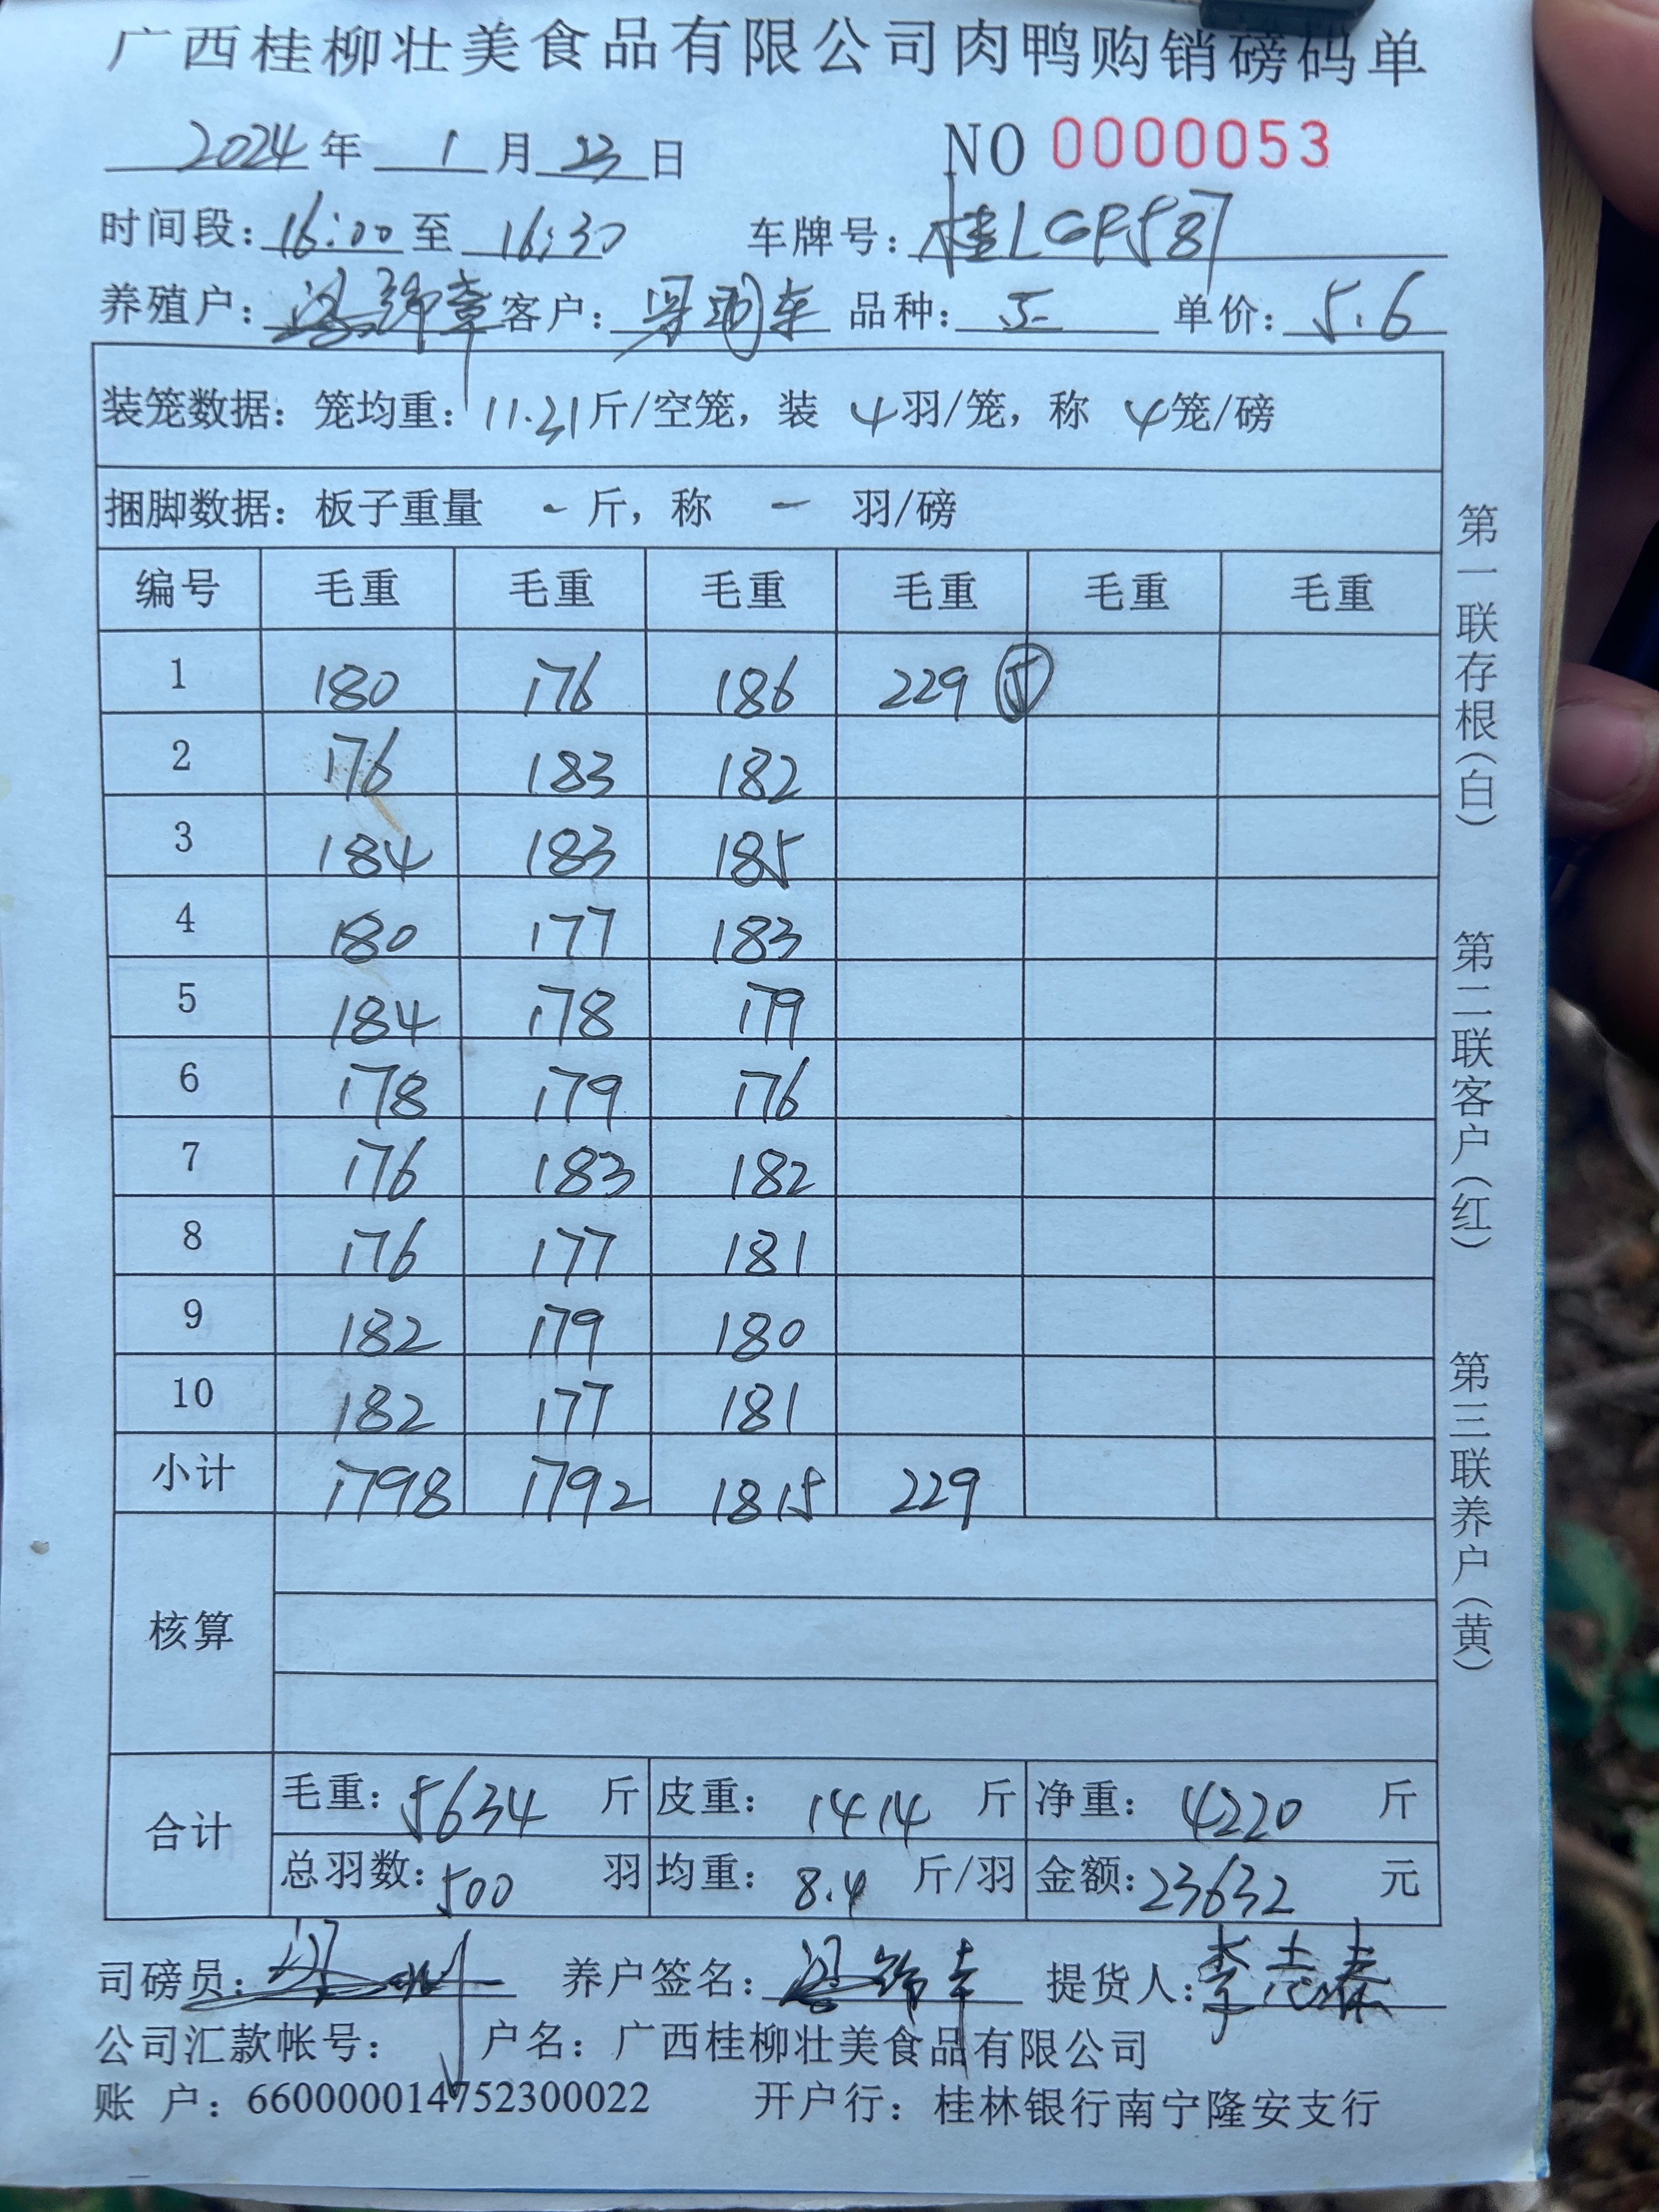 广西桂柳壮美食品有限公司肉鸭购销磅码单
2024年 1月23日 NO 0000053
时间段：16:00至 16:30 车牌号：桂LGF587
养殖户： 客户： 品种： 单价：5.6
装笼数据：笼均重：11.31斤/空笼，装 4羽/笼，称 4笼/磅
捆脚数据：板子重量 - 斤，称 一 羽/磅
编号 毛重 毛重 毛重 毛重 毛重 毛重
1 180 176 186 229 ⑤
2 176 183 182
3 184 183 185
4 180 177 183
5 184 178 179
6 178 179 176
7 176 183 182
8 176 177 181
9 182 179 180
10 182 177 181
小计 1798 1792 1815 229
核算
合计 毛重：5634 斤 皮重：1414 斤 净重：4220 斤
总羽数：500 羽 均重：8.4 斤/羽 金额：23632 元
司磅员： 养户签名： 提货人：李志春
公司汇款帐号： 户名：广西桂柳壮美食品有限公司
账 户：660000014752300022 开户行：桂林银行南宁隆安支行
第一联存根（白） 第二联客户（红） 第三联养户（黄）